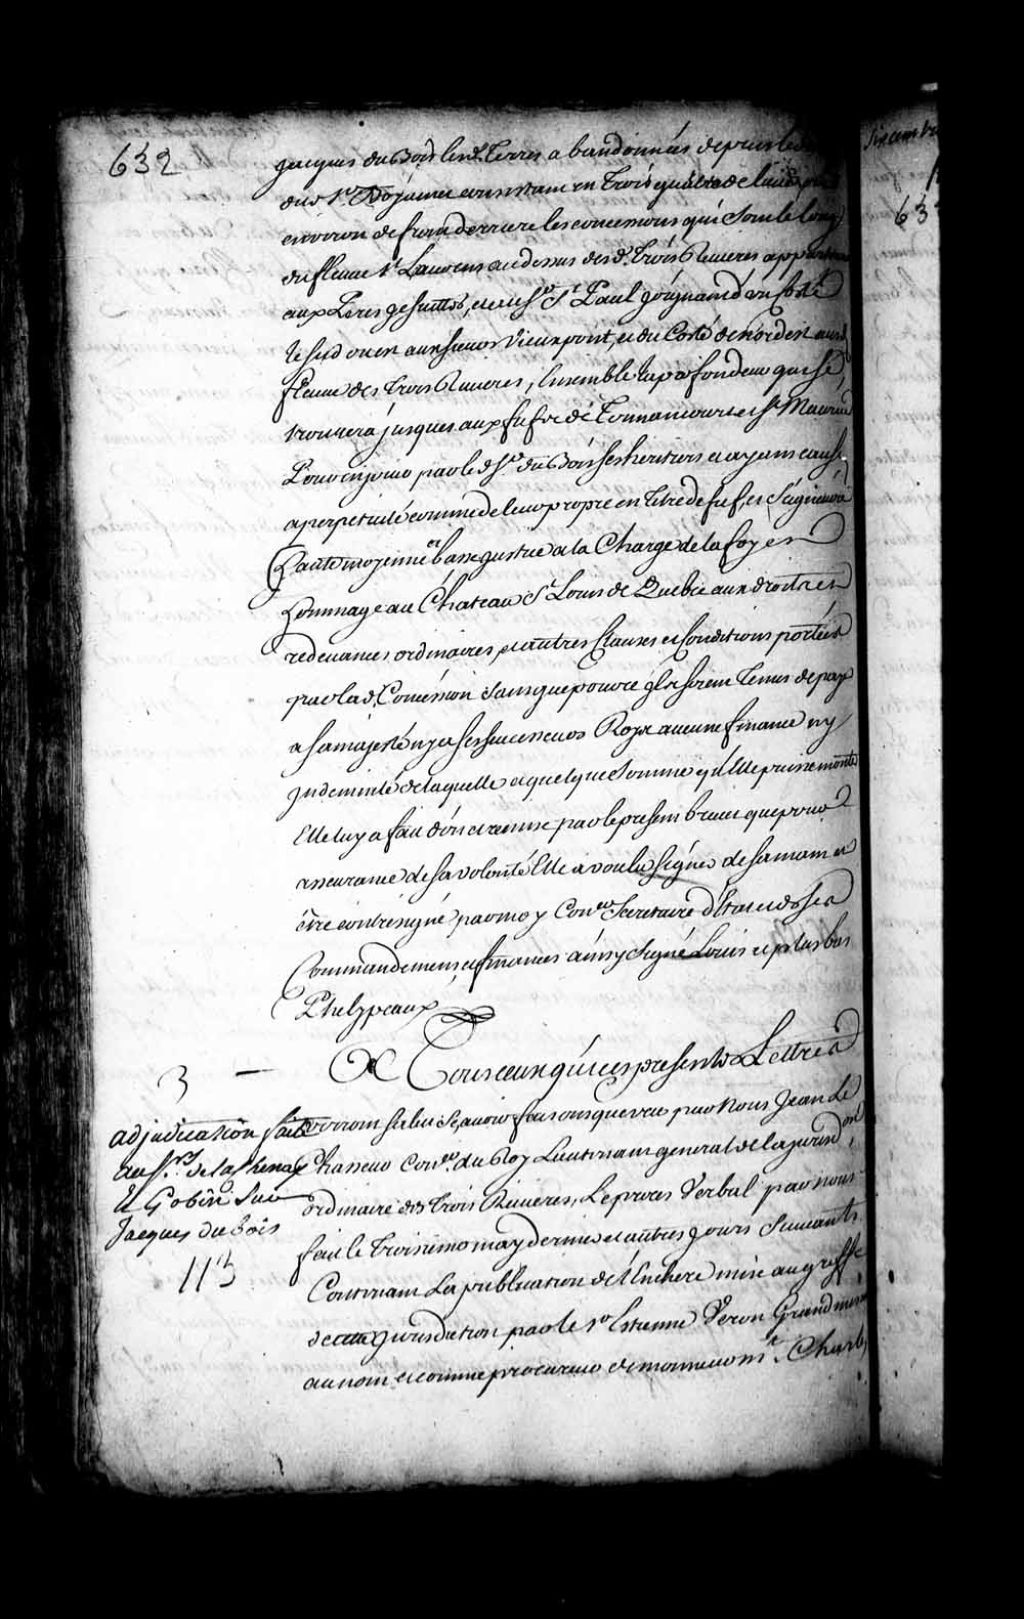 632
Jacques du Bois lesd. Terres abandonnées depuis le
dud. Sr. Boyvinet consistant en Trois quarts de lieue
environ de front derriere les concessions qui sont le long
du fleuve St. Laurens audessus desd. Trois Rivieres appartenant
aux Peres Jesuittes, et au Sr. St. Paul joignant d'un costé
le sud ouest aux sieurs Vieuxpont, et du Costé de nordest aud.
fleuve des Trois Rivieres, Ensemble la profondeur qui se
trouvera jusques aux fiefs de Tonnancour et St. Maurice
Pour en jouir par led. Sr. du Bois ses heritiers et ayans cause
a perpetuité comme de leur propre en Titre de fief, et Seigneurie
haute moyenne et basse justice a la Charge de la foy et
hommage au Château St. Louis de Quebec aux droits et
redevances ordinaires, et autres Clauses et Conditions portées
par lad. Concession sans que pour ce ils soient Tenus de payer
a Sa majesté ny a ses successeurs Roys aucune finance ny
Indemnité de laquelle a quelque somme qu'Elle puisse monter
Elle luy a fait don et remise par le present brevet que pour
asseurance de sa volonté Elle a voulu signer de sa main et
être contresigné par moy Conser. Secretaire d'Etat et de ses
Commandemens et finances ainsy signé Louis et plus bas
Phelypeaux
3 —
A Tous ceux qui ces presentes Lettres
adjudication faite
au Srs. de lachenay
Et Gobin sur
Jacques dubois
113
verront salut sçavoir faisons que veu par Nous Jean Le
Chasseur Conser. du Roy Lieutenant general de la jurisdon.
ordinaire des Trois Rivieres, Le procés Verbal par nous
fait le Troisieme may dernier et autres jours suivants
Contenant La publication de l'Enchere mise au greffe
de cette jurisdiction par le Sr. Estienne Veron Grandmesnil
au nom et comme procureur de monsieur Mr. Charles